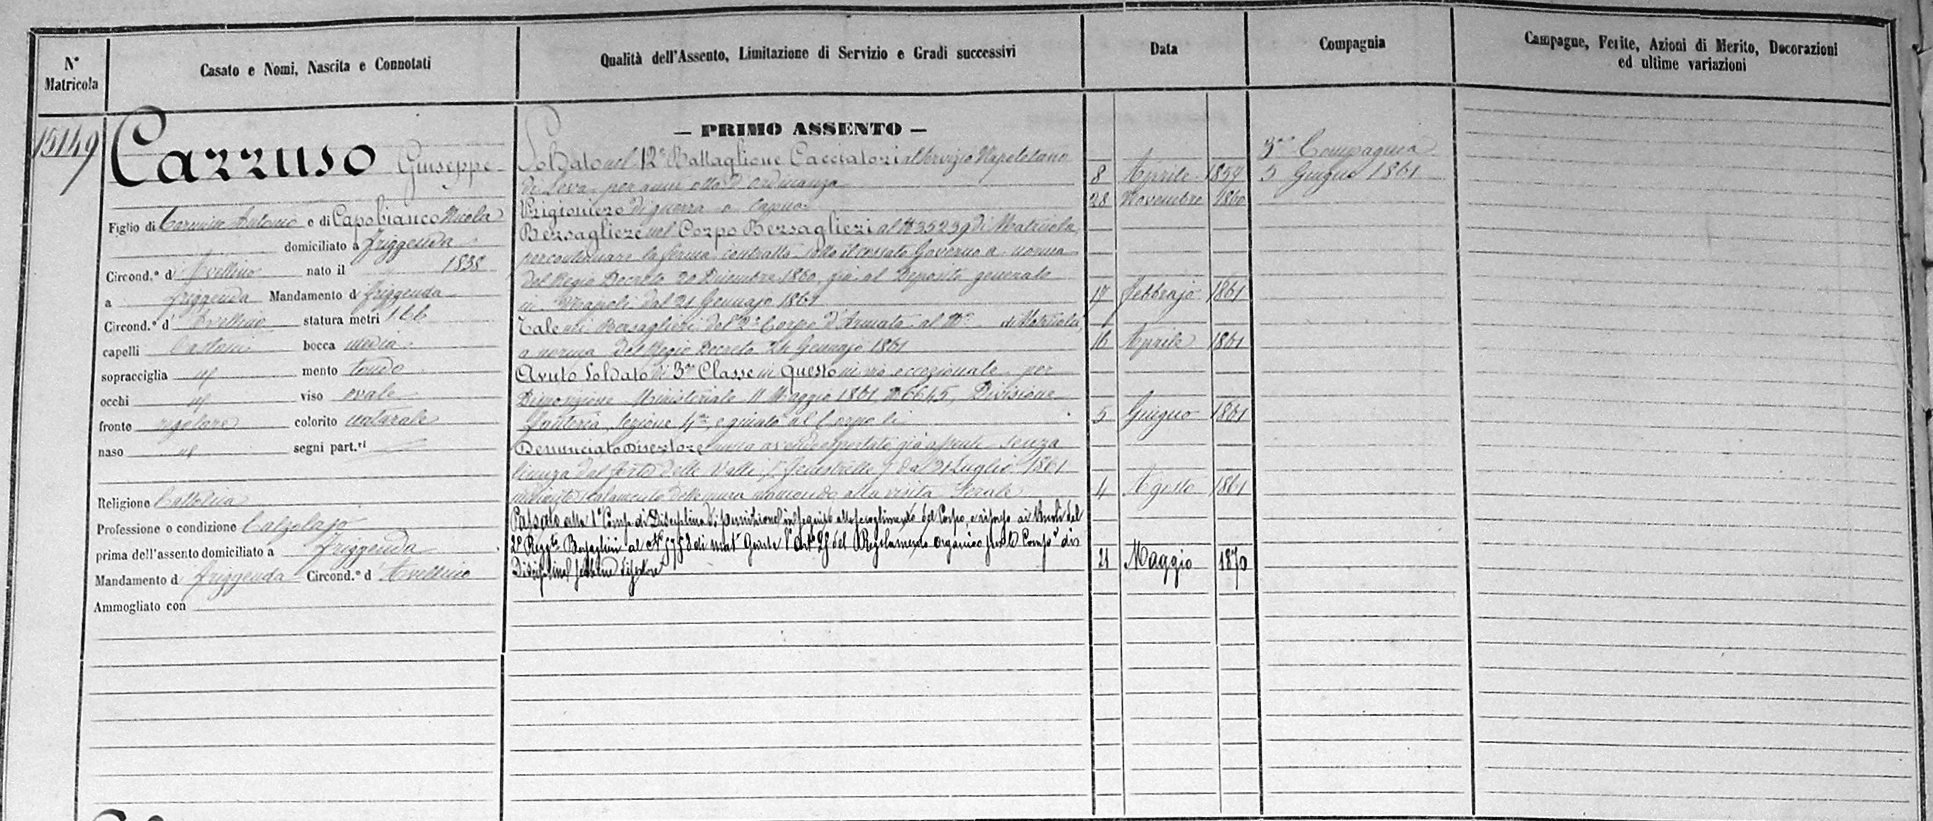 N° Matricola
Casato e Nomi, Nascita e Connotati
Qualità dell'Assento, Limitazione di Servizio e Gradi successivi
Data
Compagnia
Campagne, Ferite, Azioni di Merito, Decorazioni
ed ultime variazioni
15149
Carruso Giuseppe
Figlio di Carmine Antonio e di Capobianco Nicola
domiciliato a Friggenda
Circond.° d' Avellino nato il 1838
a Friggenda Mandamento d Friggenda
Circond.° d' Avellino statura metri 1 66
capelli Castani bocca media
sopracciglia id mento tondo
occhi id viso ovale
fronte regolare colorito naturale
naso id segni part.ri
Religione Cattolica
Professione o condizione Calzolajo
prima dell'assento domiciliato a Friggenda
Mandamento d Friggenda Circond.° d' Avellino
Ammogliato con
— PRIMO ASSENTO —
Soldato nel 12° Battaglione Cacciatori al Servizio Napoletano
di Leva per anni otto d'ordinanza 8 Aprile 1859
Prigioniero di guerra a Capua 28 Novembre 1860
Bersagliere nel Corpo Bersaglieri al N 35239 di Matricola
per continuare la ferma contratta sotto il cessato Governo a norma
del Regio Decreto 20 Dicembre 1860 già al Deposito generale
in Napoli dal 21 Gennajo 1861 17 Febbrajo 1861
Tale nei Bersaglieri del 2° Corpo d'Armata al N° di Matricola
a norma del Regio Decreto 24 Gennajo 1861 16 Aprile 1861
Avuto Soldato di 3a Classe in questo in via eccezionale per
Disposizione Ministeriale 11 Maggio 1861 N 6645, Divisione
fanteria, sezione 4a e giunto al Corpo li 5 Giugno 1861
Denunciato Disertore
licenza dal forte delle Valli, Fenestrelle, dal 31 Luglio 1861
delle mura mancando alla visita Serale 4 Agosto 1861
Passato alla 1a Comp.a di Disciplina di punizione in seguito allo scioglimento del Corpo, e ai Ruoli del
2° Regg.to Bersaglieri al N° 5758 di mat.a Giusta l'Art.° 25 del Regolamento organico
Disciplina sebbene disertore 21 Maggio 1870
3a Compagnia
5 Giugno 1861